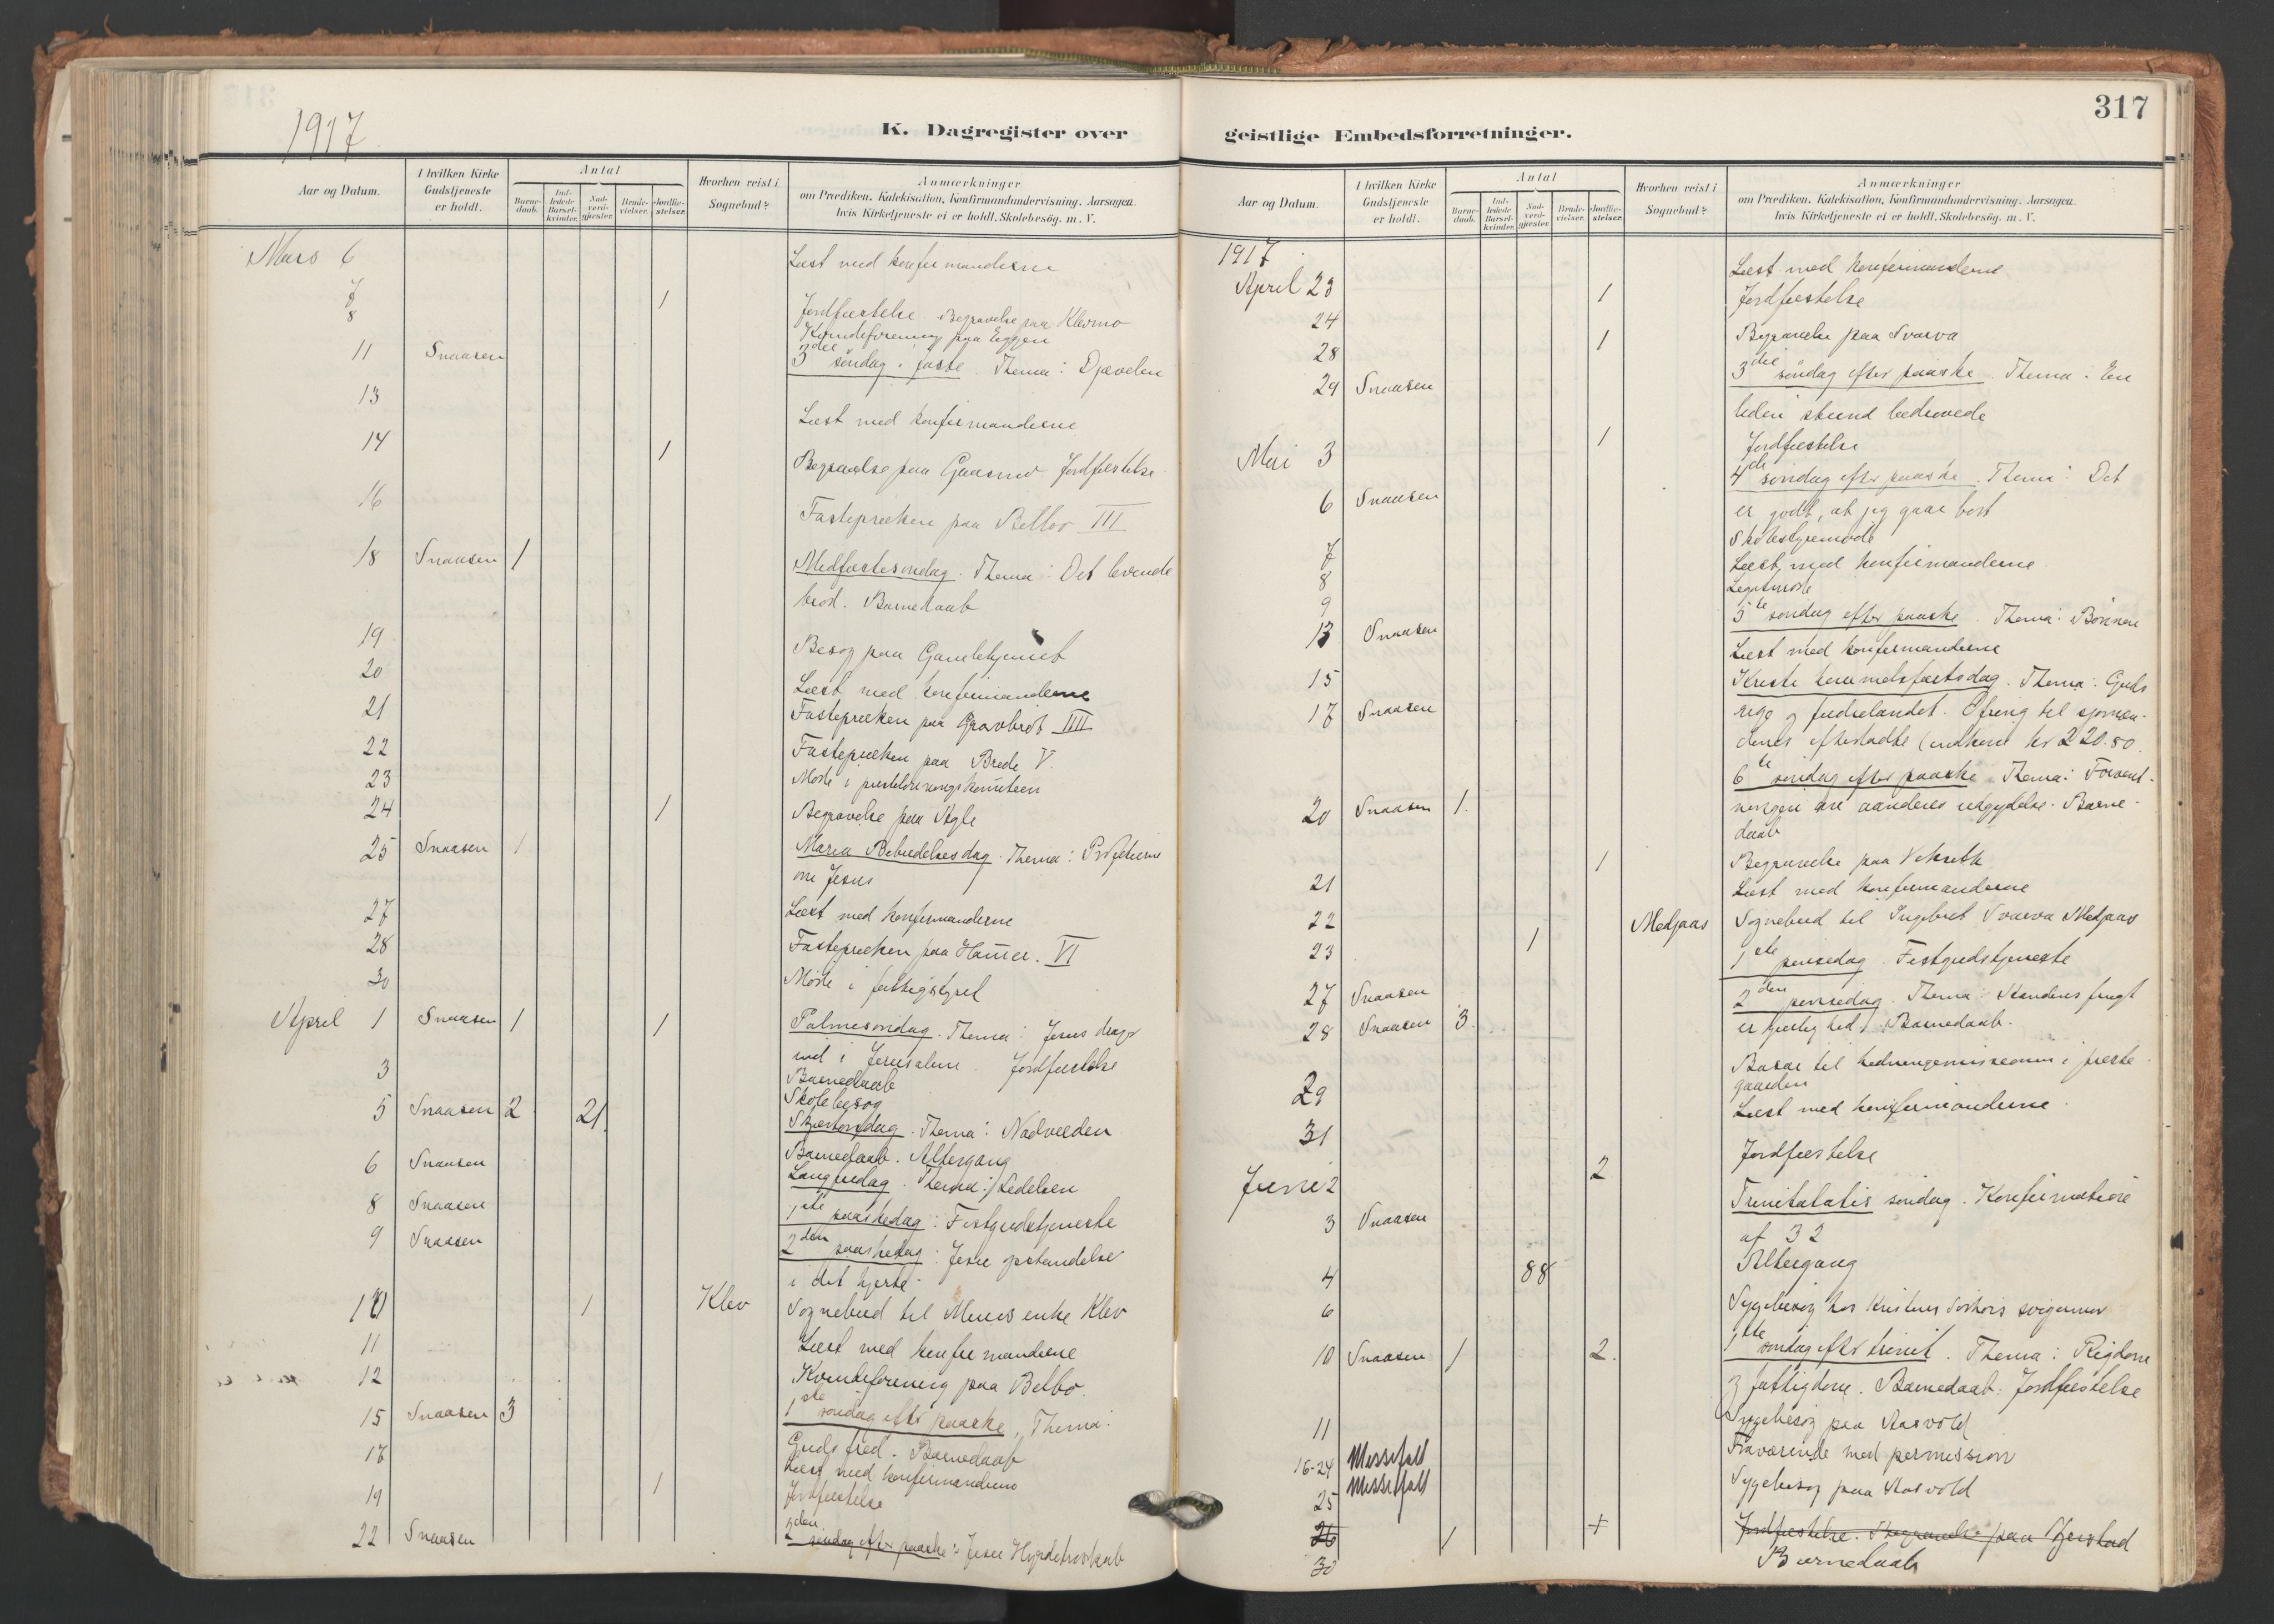 1917
K. Dagregister over
Aar og Datum.
I hvilken Kirke Gudstjeneste er holdt.
Antal
Barnedaab.
Indledede Barselkvinder.
Nadverdgjester.
Brudevielser.
Jordfæstelser.
Hvorhen reist i Sognebud?
Anmærkninger
om Prædiken, Katekisation, Konfirmandundervisning. Aarsagen
hvis Kirketjeneste ei er holdt. Skolebesøg. m. V.
Mars 6 Læst med konfirmanderne
7 1 Jordfæstelse. Begravelse paa Klevmo
8 Kvindeforening paa Eggen
11 Snaasen 3die søndag i faste. Thema: Djævelen
13 Læst med konfirmanderne
14 1 Begravelse paa Gaasmo Jordfæstelse
16 Fastepræken paa Belbo III
18 Snaasen 1 Midfastesøndag. Thema: Det levende
brød. Barnedaab
19 Besøg paa Gamlehjemmet
20 Læst med konfirmanderne
21 Fastepræken paa Gravbrøt IIII
22 Fastepræken paa Brede V.
23 Møde i
24 1 Begravelse paa Agle
25 Snaasen 1 Maria Bebudelsesdag. Thema: Profetierne
om Jesus
27 Læst med konfirmanderne
28 Fastepræken paa Hammer. VI
30 Møde i fattigstyret
April 1 Snaasen 1 1 Palmesøndag. Thema: Jesus drager
ind i Jerusalem. Jordfæstelse
Barnedaab
3 Skolebesøg
5 Snaasen 2 21 Skjærtorsdag. Thema: Nadverden
Barnedaab. Altergang
6 Snaasen Langfredag. Thema: Lidelsen
8 Snaasen 1ste paaskedag: Festgudstjeneste
9 Snaasen 2den paaskedag: Jesu opstandelse
i det hjerte
10 1 Klev Sognebud til enke Klev
11 Læst med konfirmanderne
12 Kvindeforening paa Belbo.
15 Snaasen 3 1ste søndag efter paaske, Thema:
Guds fred. Barnedaab
17 Læst med konfirmanderne
19 1 Jordfæstelse
22 Snaasen 2den søndag efter paaske: Jesu Hyrdetroskab
317
geistlige Embedsforretninger.
Aar og Datum.
I hvilken Kirke Gudstjeneste er holdt.
Antal
Barnedaab.
Indledede Barselkvinder.
Nadverdgjester.
Brudevielser.
Jordfæstelser.
Hvorhen reist i Sognebud?
Anmærkninger
om Prædiken, Katekisation, Konfirmandundervisning. Aarsagen
hvis Kirketjeneste ei er holdt. Skolebesøg. m. V.
1917
Læst med konfirmanderne
April 23 1 Jordfæstelse
24
28 1 Begravelse paa Svarva
29 Snaasen 3die søndag efter paaske. Thema: En
liden stund bedrøvede
Mai 3 1 Jordfæstelse
4de søndag efter paaske. Thema: Det
6 Snaasen er godt, at jeg gaar bort
Skolestyremøde
7 Læst med konfirmanderne
8 Legatmøde
9
13 Snaasen 5te søndag efter paaske. Thema: Bønnen
15 Læst med konfirmanderne
17 Snaasen Kristi himmelfartsdag. Thema: Guds
rige og fædrelandet. Ofring til sjømæn-
denes efterladte (indkom kr 220.80
20 Snaasen 1. 6te søndag efter paaske. Thema: Forvent-
ningen om aandens udgydelse. Barne-
daab
21 1 Begravelse paa Vekseth
22 Læst med konfirmanderne
23 1 Medjaas Sognebud til Ingebret Svarva Medjaas
27 Snaasen 1ste pinsedag. Festgudstjeneste
28 Snaasen 3. 2den pinsedag. Thema: Aandens frugt
er kjærlighed. Barnedaab.
29 Basar til hedningemissionen i preste-
gaarden
31 Læst med konfirmanderne
Juni 2 2 Jordfæstelse
3 Snaasen Trinitatis søndag. Konfirmation
af 32
4 88 Altergang
6 Sygebesøg hos
10 Snaasen 1 2. 1ste søndag efter trinit. Thema: Rigdom
og fattigdom. Barnedaab. Jordfæstelse
11 Sygebesøg paa Aasvold
16-24 Messefald Fraværende med permission
25 Messefald Sygebesøg paa Aasvold
26 1 Jordfæstelse. Begravelse paa Gjerstad
30 1 Barnedaab